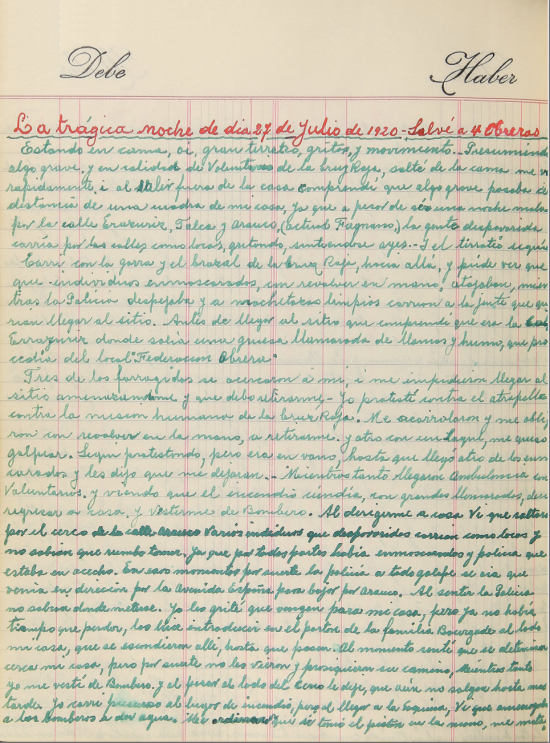 Debe Haber
La trágica noche de dia 27 de Julio de 1920 - Salvé a 4 Obreros
Estando en cama, oi, gran tiroteo, gritos, y movimiento.- Presumiendo
algo grave, y en calidad de Voluntario de la Cruz Roja, salté de la cama me v
rapidamente, i al salir fuera de la casa comprendi que algo grave pasaba a
distancia de una cuadra de mi casa, ya que a pesar de ser una noche mala
por la calle Errazuriz, Talca y Arauco, (actual Fagnano,) la gente despavorida
corria por las calles como locas, gritando, sintiendose ayes.- I el tiroteo seguia
Corri con la gorra y el brazal de la Cruz Roja, hacia allá, y pude ver que
que individuos enmascarados, con revolver en mano, atajaban, mien
tras la Policia despejaba y a machetazos limpios corrian a la gente que que
rian llegar al sitio. Antes de llegar al sitio que comprendi que era la
Errazuriz donde salia una gruesa llamarada de llamas y humo, que pro
cedia del local "Federacion Obrera"
Tres de los forragidos se acercaron a mi, i me impidieron llegar al
sitio amenazandome y que debo retirarme.- Yo protesté contra el atropello
contra la mision humana de la Cruz Roja. Me acorralaron y me oblig
ron con revolver en la mano, a retirarme. y otro con un laque, me quiso
golpear. Segui protestando, pero era en vano, hasta que llegó otro de los enm
carados y les dijo que me dejaran.- Mientras tanto llegaron Ambulancia con
Voluntarios, y viendo que el incendio cundia, con grandes llamaradas, deci
regresar a casa, y vestirme de Bombero. Al dirigirme a casa Vi que saltaro
por el cerco de la calle Arauco Varios individuos que despavoridos corrian como locos y
no sabian que rumbo tomar, ya que por todas partes habia enmascarados y policia que
estaba en acecho. En esos momentos por suerte la policia a todo galope se oia que
venia en direccion por la Avenida España para bajar por Arauco. Al sentir la Policia
no sabian donde meterse. Yo les grité que vengan para mi casa, pero ya no habia
tiempo que perder, los hice introducir en el portal de la familia Bourgade al lado
mi casa, que se escondieron alli, hasta que pasen. Al momento senti que se detenian
cerca mi casa, pero por suerte no les vieron y prosiguieron su camino, Mientras tanto
yo me vesti de Bombero. y al pasar al lado del Cerco le dije, que aún no salgan hasta mas
tarde. Yo corri presuroso al lugar de incendio, pero al llegar a la Esquina, Vi que
a los bomberos a dar agua. Me que si tomo el piton en la mano, me